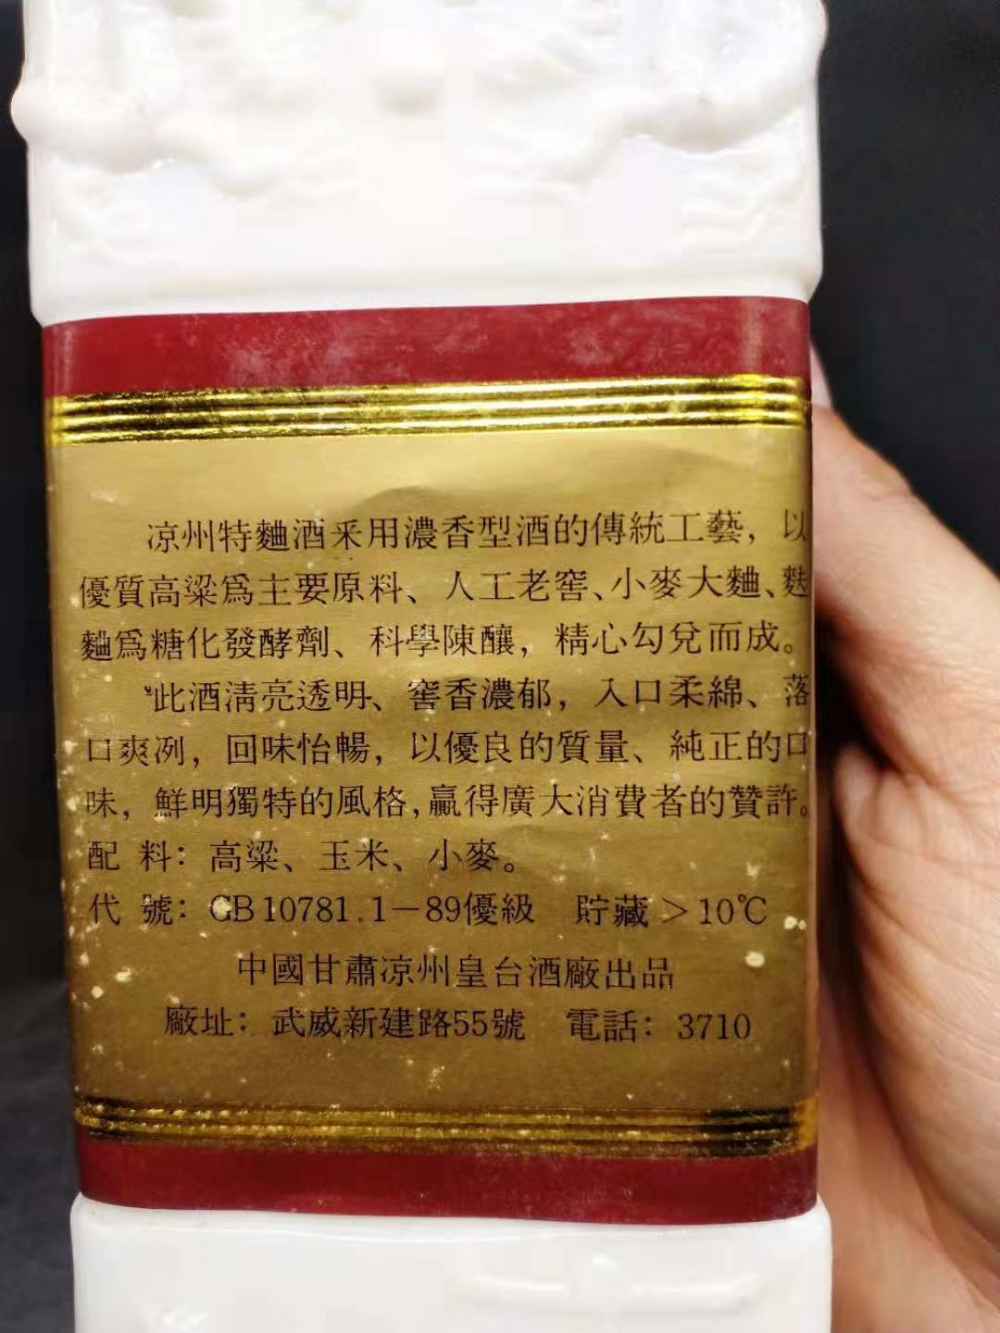 凉州特麯酒采用濃香型酒的傳統工藝，以
優質高粱爲主要原料、人工老窖、小麥大麯、麩
麯爲糖化發酵劑、科學陳釀，精心勾兌而成。
此酒清亮透明、窖香濃郁，入口柔綿、落
口爽洌，回味怡暢，以優良的質量、純正的口
味，鮮明獨特的風格，贏得廣大消費者的贊許。
配料：高粱、玉米、小麥。
代號：GB10781.1－89優級 貯藏＞10℃
中國甘肅凉州皇台酒廠出品
廠址：武威新建路55號 電話：3710